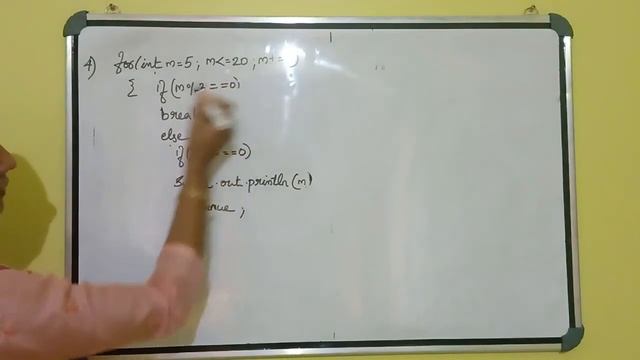 4) for(int m=5; m<=20; m+=
{ if(m%2==0)
else
if( ==0)
out.println(m)
;